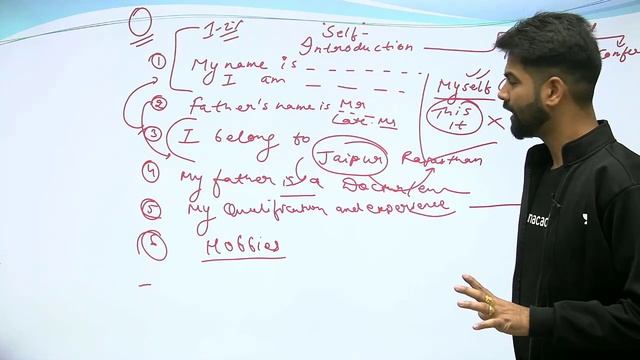 Self-
Introduction
① My name is _ _ _ _ _ _
I am _ _ _ _ _ _
Myself
This
it ×
② Father's name is Mr
Late. Mr
③ I belong to Jaipur Rajasthan
④ My father is a
⑤ My Qualification and experience
⑥ Hobbies